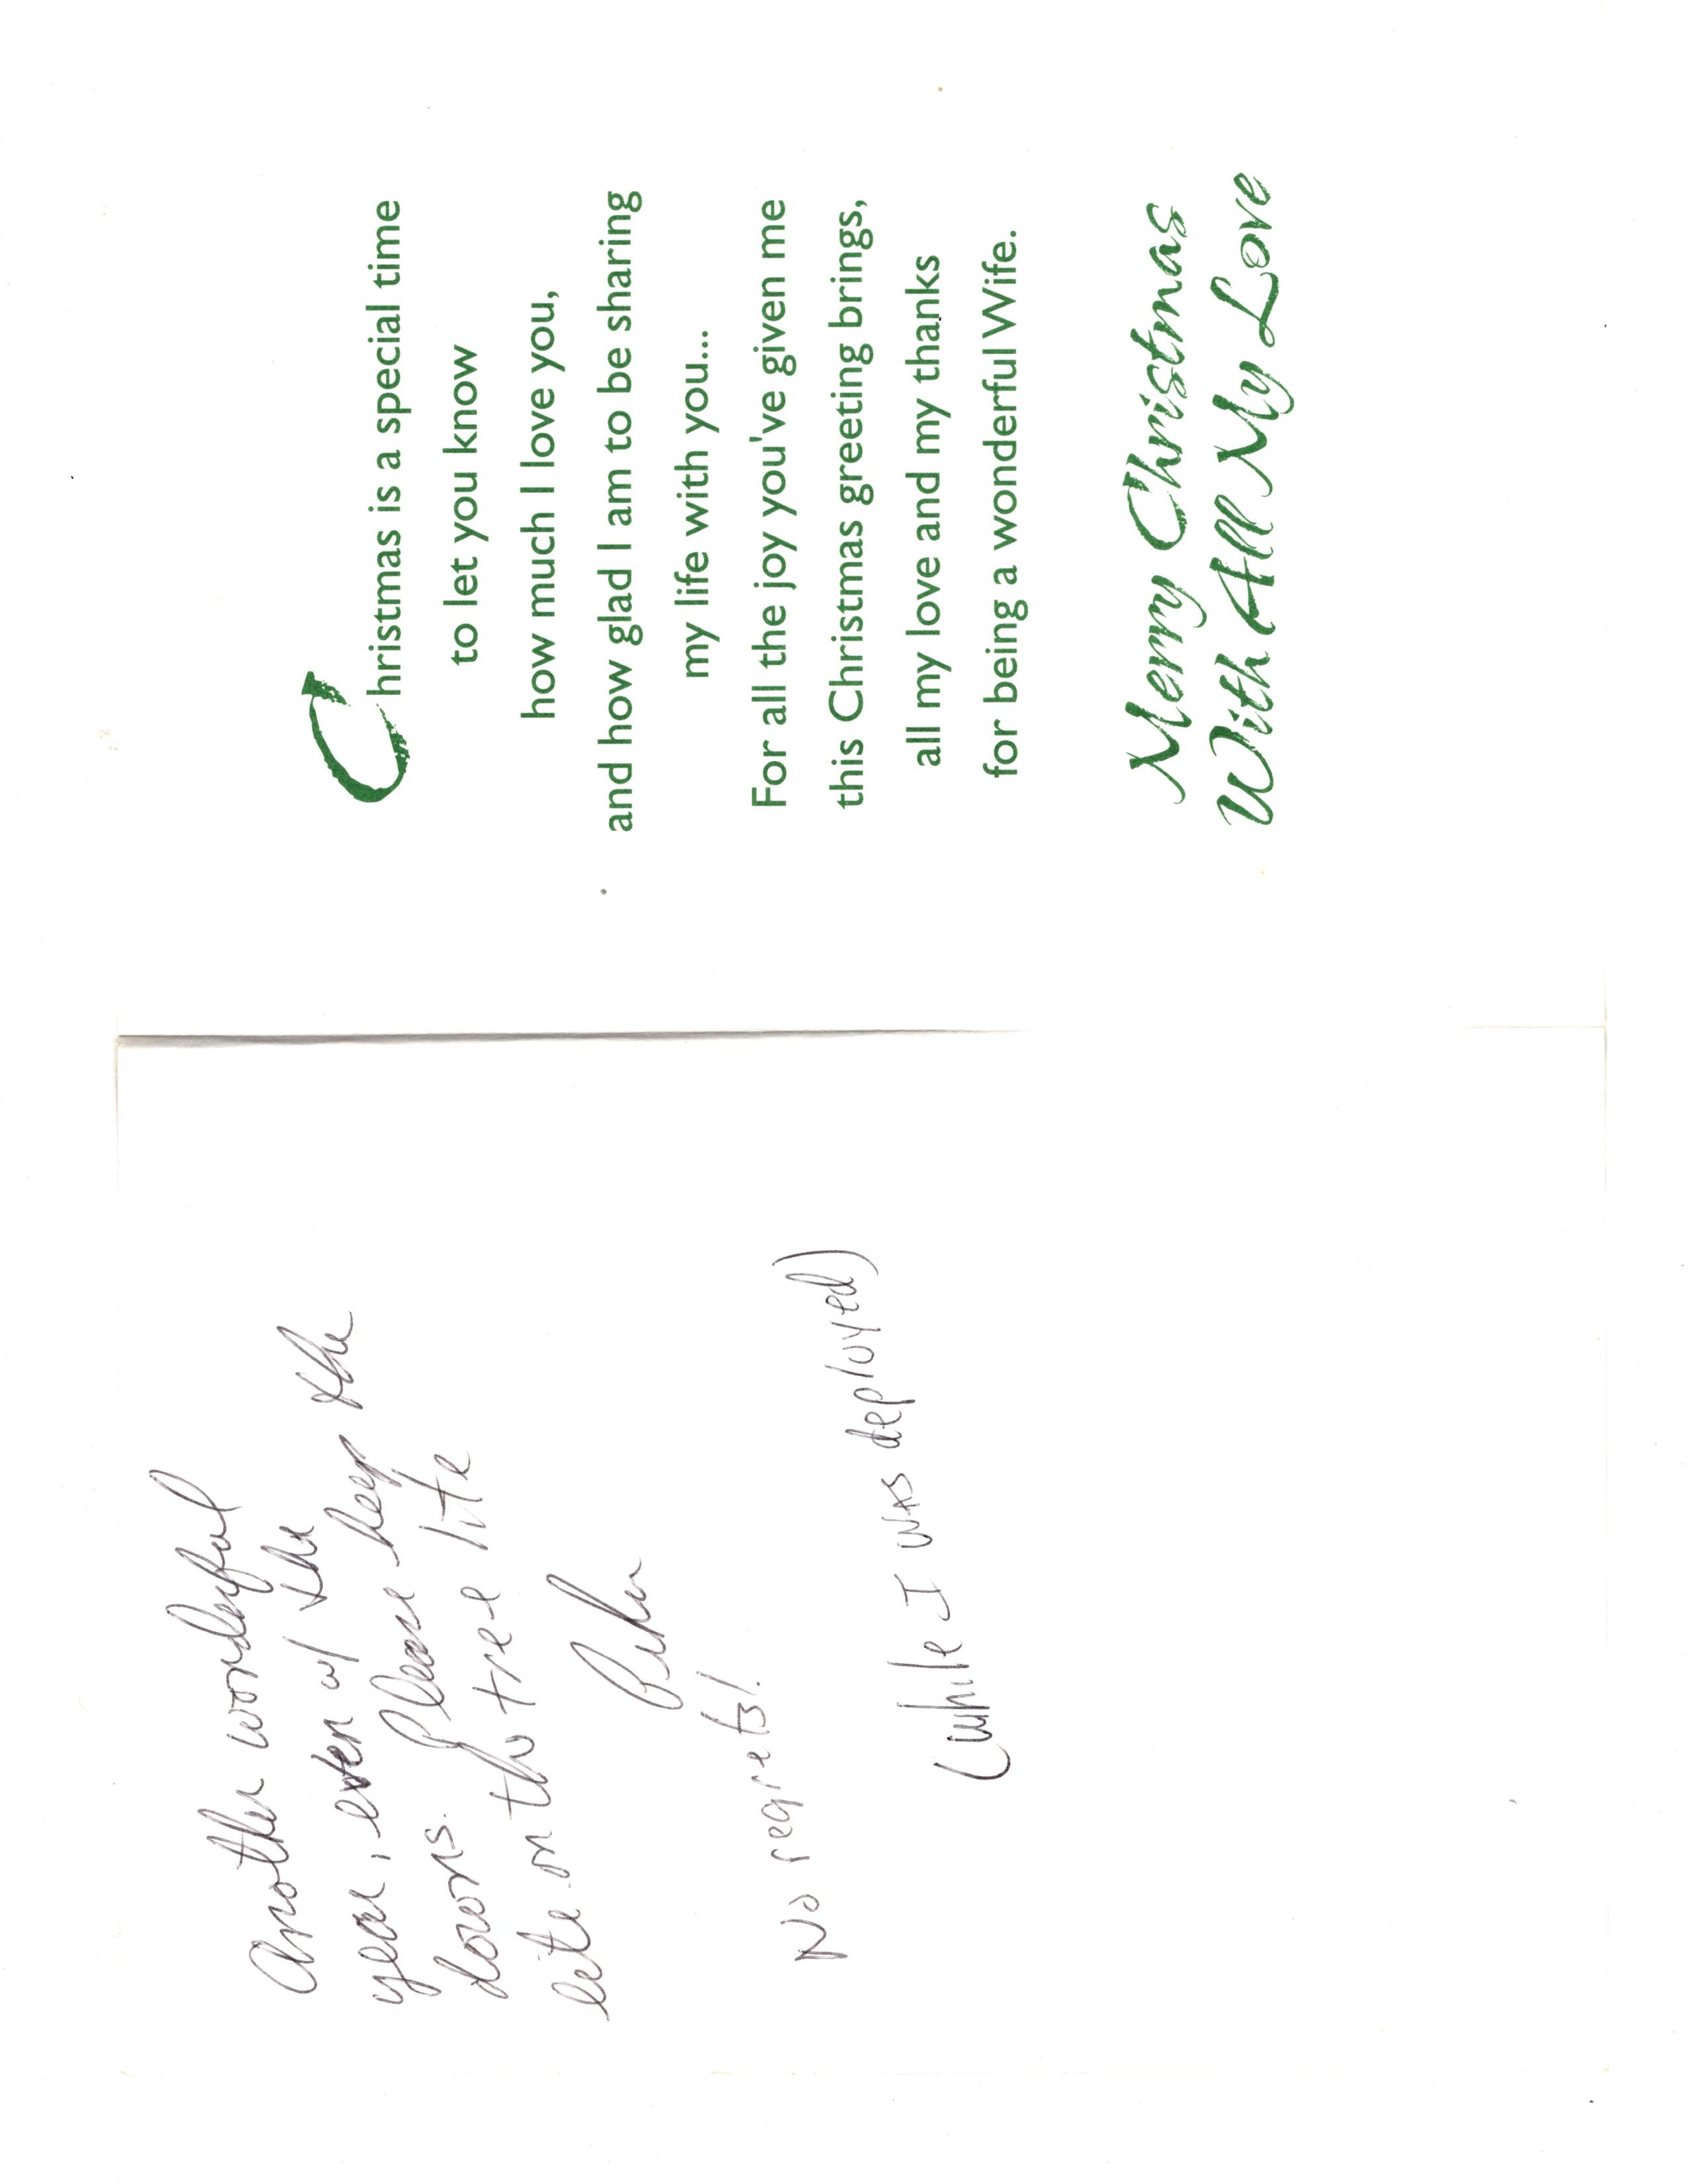 Another wonderful
year, even w/ the
downs. Please keep the
lite on the tree lite

No regrets!
(while I was deployed)
Christmas is a special time
to let you know
how much I love you,
and how glad I am to be sharing
my life with you...
For all the joy you've given me
this Christmas greeting brings,
all my love and my thanks
for being a wonderful Wife.
Merry Christmas
With All My Love